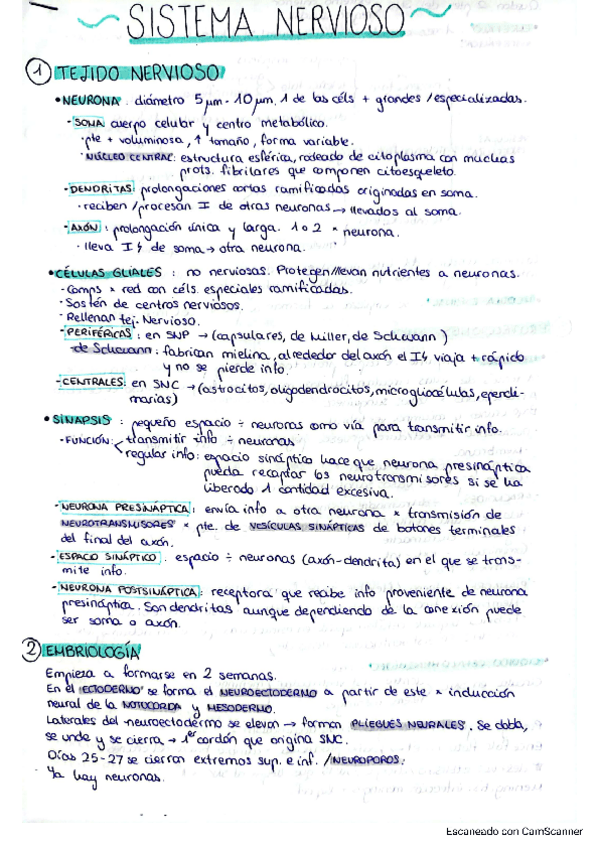 SISTEMA NERVIOSO
1 TEJIDO NERVIOSO
• NEURONA: diámetro 5μm-10μm, 1 de las céls + grandes/especializadas.
- SOMA: cuerpo celular y centro metabólico.
· pte + voluminosa, ↑ tamaño, forma variable.
· NÚCLEO CENTRAL: estructura esférica, rodeado de citoplasma con muchas
prots. fibrilares que componen citoesqueleto.
- DENDRITAS: prolongaciones cortas ramificadas originadas en soma.
· reciben/procesan I de otras neuronas → llevados al soma.
- AXÓN: prolongación única y larga. 1 o 2 × neurona.
· lleva I↯ de soma → otra neurona.
• CÉLULAS GLIALES: no nerviosas. Protegen/llevan nutrientes a neuronas.
- Comps × red con céls. especiales ramificadas.
- Sostén de centros nerviosos.
- Rellenan tej. Nervioso.
- PERIFÉRICAS: en SNP → (capsulares, de Müller, de Schwann)
de Schwann: fabrican mielina, alrededor del axón el I↯ viaja + rápido
y no se pierde info.
- CENTRALES: en SNC → (astrocitos, oligodendrocitos, microgliocélulas, ependi-
marias)
• SINAPSIS: pequeño espacio ÷ neuronas como vía para transmitir info.
- FUNCIÓN: transmitir info ÷ neuronas
regular info: espacio sináptico hace que neurona presináptica
pueda recaptar los neurotransmisores si se ha
liberado 1 cantidad excesiva.
- NEURONA PRESINÁPTICA: envía info a otra neurona × transmisión de
NEUROTRANSMISORES × pte. de VESÍCULAS SINÁPTICAS de botones terminales
del final del axón.
- ESPACIO SINÁPTICO: espacio ÷ neuronas (axón-dendrita) en el que se trans-
mite info.
- NEURONA POSTSINÁPTICA: receptora que recibe info proveniente de neurona
presináptica. Son dendritas aunque dependiendo de la conexión puede
ser soma o axón.
2 EMBRIOLOGÍA
Empieza a formarse en 2 semanas.
En el ECTODERMO se forma el NEUROECTODERMO a partir de este × inducción
neural de la NOTOCORDA y MESODERMO.
Laterales del neuroectodermo se elevan → forman PLIEGUES NEURALES. Se dobla,
se unde y se cierra → 1er cordón que origina SNC.
Días 25-27 se cierran extremos sup. e inf. /NEUROPOROS.
Ya hay neuronas.
Escaneado con CamScanner